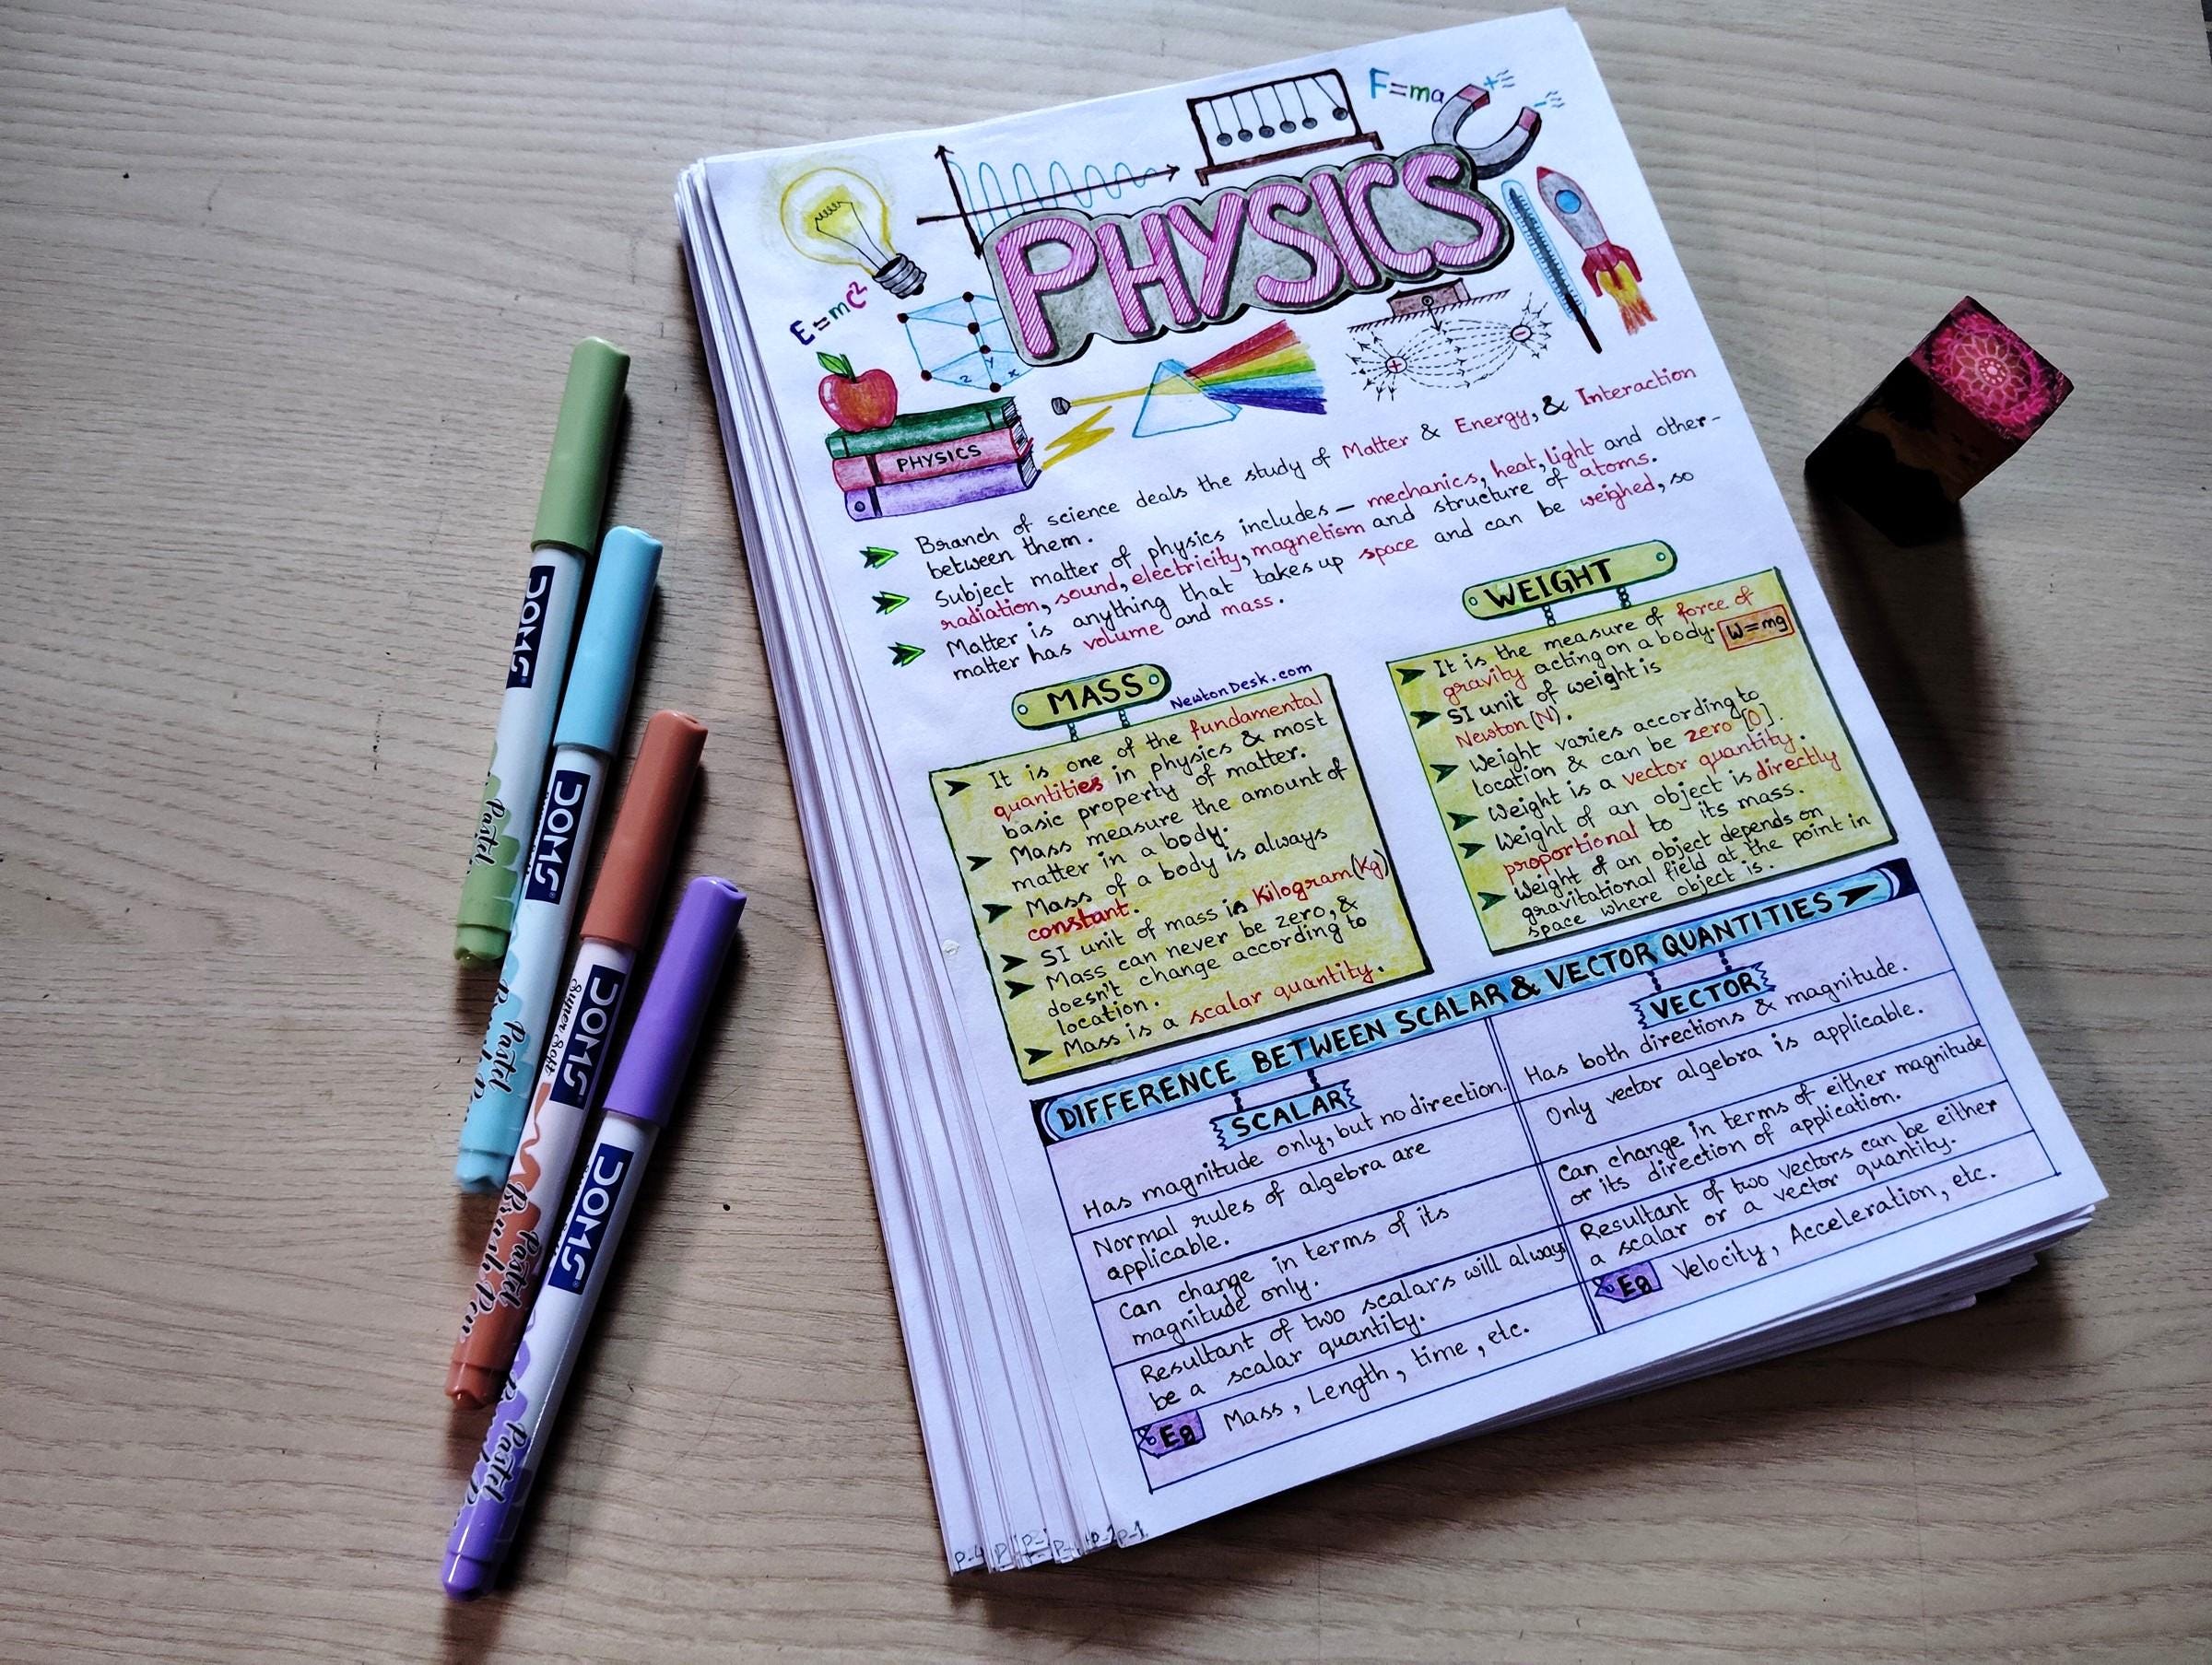 F=ma
PHYSICS
E=mc²
PHYSICS
z y x
Branch of science deals the study of Matter & Energy, & Interaction
between them.
Subject matter of physics includes – mechanics, heat, light and other-
radiation, sound, electricity, magnetism and structure of atoms.
Matter is anything that takes up space and can be weighed, so
matter has volume and mass.
MASS
NewtonDesk.com
It is one of the fundamental
quantities in physics & most
basic property of matter.
Mass measure the amount of
matter in a body.
Mass of a body is always
constant.
SI unit of mass is Kilogram(Kg)
Mass can never be zero, &
doesn't change according to
location.
Mass is a scalar quantity.
WEIGHT
It is the measure of force of
gravity acting on a body. W=mg
SI unit of weight is
Newton(N).
Weight varies according to
location & can be zero [0].
Weight is a vector quantity.
Weight of an object is directly
proportional to its mass.
Weight of an object depends on
gravitational field at the point in
space where object is.
DIFFERENCE BETWEEN SCALAR & VECTOR QUANTITIES
SCALAR
Has magnitude only, but no direction.
Normal rules of algebra are
applicable.
Can change in terms of its
magnitude only.
Resultant of two scalars will always
be a scalar quantity.
Eg Mass, Length, time, etc.
VECTOR
Has both directions & magnitude.
Only vector algebra is applicable.
Can change in terms of either magnitude
or its direction of application.
Resultant of two vectors can be either
a scalar or a vector quantity.
Eg Velocity, Acceleration, etc.
P-4
P-2
P-1
DOMS
Pastel
DOMS
Pastel
DOMS
Super Soft
Pastel
Brush Pen
DOMS
Pastel